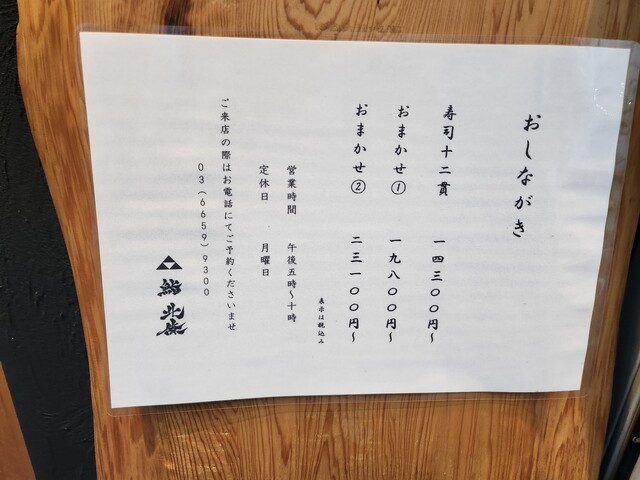 おしながき
寿司十二貫 一四三〇〇円〜
おまかせ① 一九八〇〇円〜
おまかせ② 二三一〇〇円〜
表示は税込み
営業時間 午後五時〜十時
定休日 月曜日
ご来店の際はお電話にてご予約くださいませ
03(6659)9300
鮨